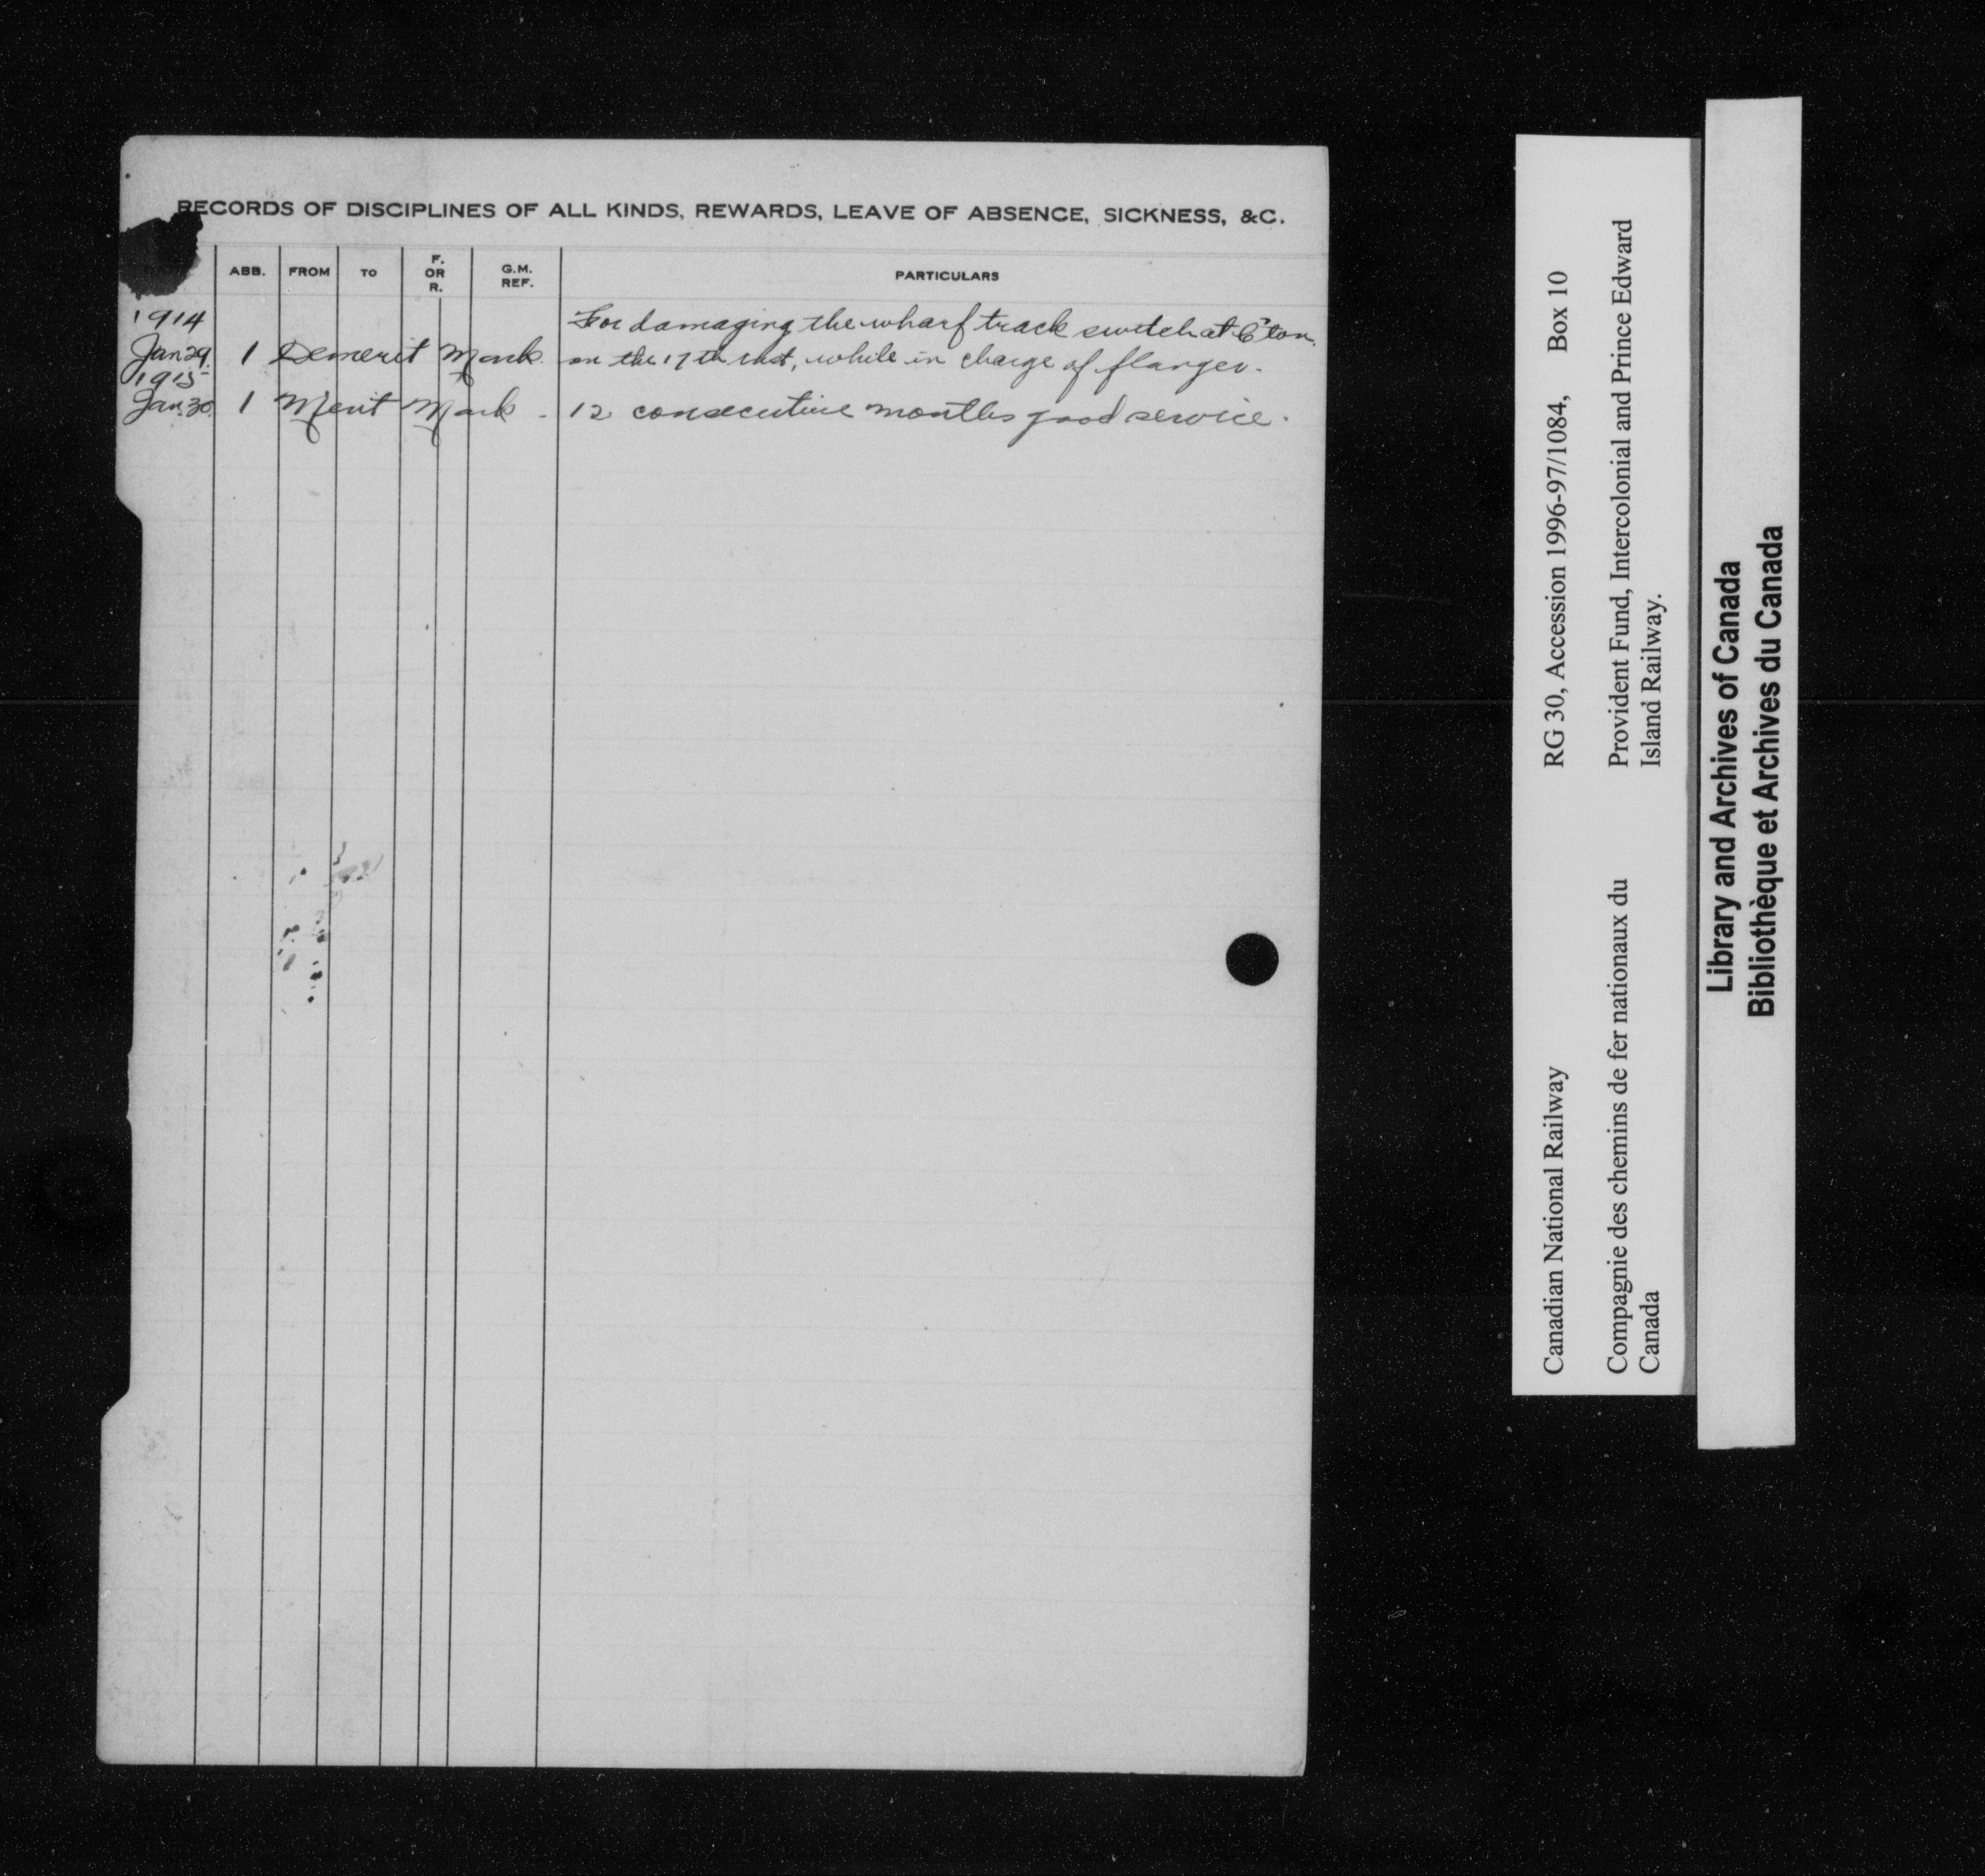 RECORDS OF DISCIPLINES OF ALL KINDS, REWARDS, LEAVE OF ABSENCE, SICKNESS, &C.
DATE ABB. FROM TO F. OR R. G.M. REF. PARTICULARS
1914 For damaging the wharf track switch at C'ton.
Jan 29. 1 Demerit Mark. on the 17th inst, while in charge of flanger.
1915
Jan. 30. 1 Merit Mark - 12 consecutive months good service.
Canadian National Railway RG 30, Accession 1996-97/1084, Box 10
Compagnie des chemins de fer nationaux du Canada
Provident Fund, Intercolonial and Prince Edward Island Railway.
Library and Archives of Canada
Bibliothèque et Archives du Canada